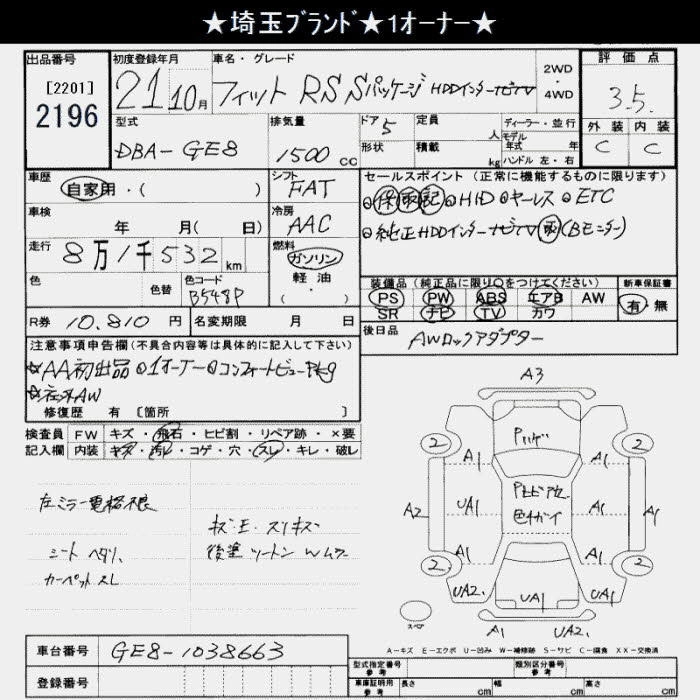 ★埼玉ブランド★1オーナー★
出品番号 初度登録年月 車名・グレード 評価点
[2201]
2196
21 10月 フィット RS Sパッケージ HDDインターナビTV 2WD・4WD 3.5
型式 排気量 ドア 5 定員 人 ディーラー・並行 外装 内装
DBA-GE8 1500cc 形状 積載 kg モデル年式 年式 ハンドル 左・右 C C
車歴 シフト セールスポイント (正常に機能するものに限ります)
自家用・( ) FAT
車検 冷房 ⊙保取記⊙HID⊙キーレス⊙ETC
年 月(日) AAC ⊙純正HDDインターナビTV(Bモニター)
走行 8万1千532km 燃料 ガソリン・軽油・( )
色 色替 色コード 装備品(純正品に限り○をつけてください) 新車保証書
B548P PS PW ABS エアB AW 有・無
SR ナビ TV カワ
R券 10,810円 名変期限 月 日 後日品 AWロックアダプター
注意事項申告欄(不具合内容等は具体的に記入して下さい)
☆AA初出品⊙1オーナー⊙コンフォートビューPkg
☆社外AW
修復歴 有 [箇所 ]
検査員 FW キズ・飛石・ヒビ割・リペア跡・×要
記入欄 内装 キズ・汚れ・コゲ・穴・スレ・キレ・破レ
左ミラー電格不良
シートヘタリ、
カーペットスレ
キズ・エ・スリキズ
後塗 ツートン Wムラ
A3
2 2
A1 A1
A2 UA1 UA1 A1
色チガイ
A1 A1
2 2
UA2. UA1 UA1
スペア
A1 UA2.
A-キズ E-エクボ U-凹み W-補修跡 S-サビ C-腐食 XX-交換済
車台番号 GE8-1038663
登録番号
型式指定番号 参考 類別区分番号 参考
車庫証明用 参考 長さ cm 幅 cm 高さ cm